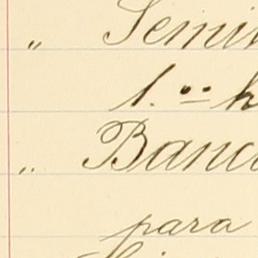 „ Semin
1.ºº h
„ Banc
para